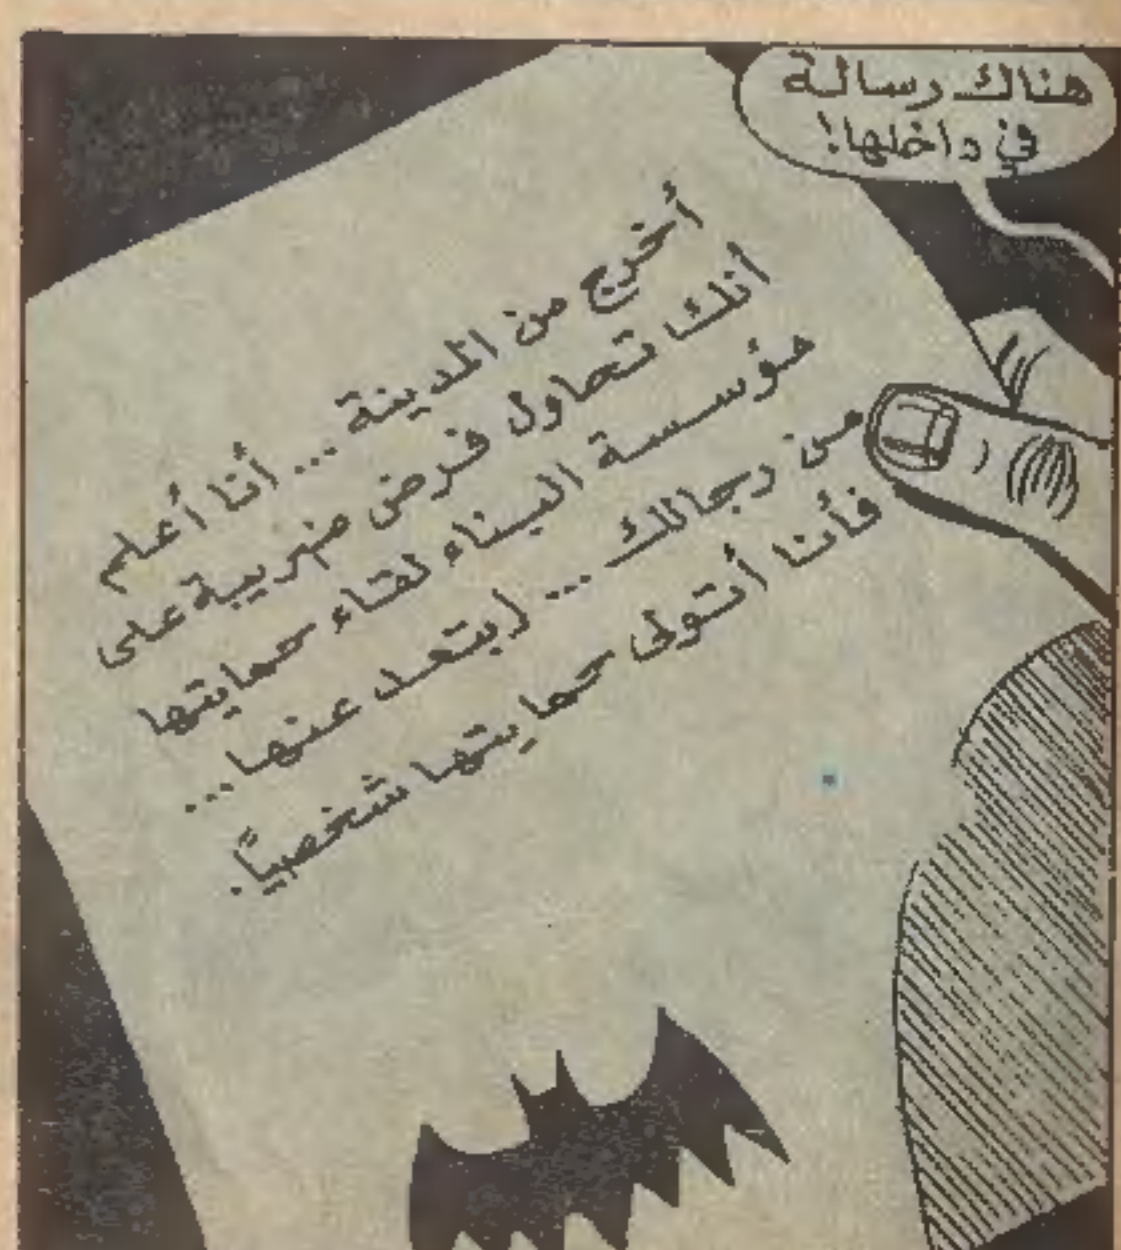 هناك رسالة
في داخلها!
أخرج من المدينة ... أنا أعلم
أنك تحاول فرض ضريبة على
مؤسسة البناء لقاء حمايتها
من رجالك ... إبتعد عنها ...
فأنا أتولى حمايتها شخصيًا.